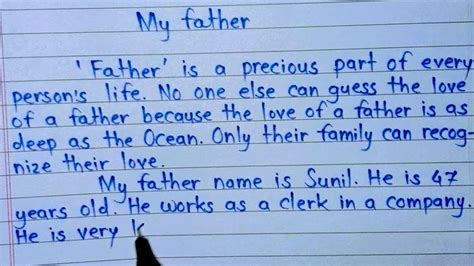 My father
'Father' is a precious part of every
person's life. No one else can guess the love
of a father because the love of a father is as
deep as the Ocean. Only their family can recog-
nize their love.
My father name is Sunil. He is 47
years old. He works as a clerk in a company.
He is very